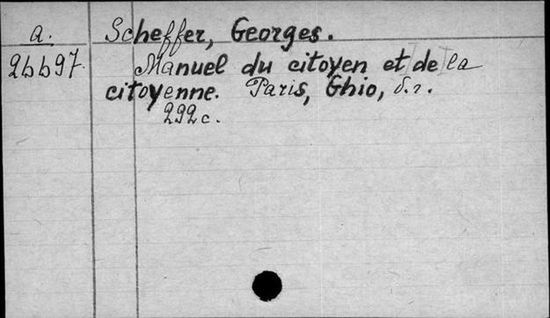 a. Scheffer, Georges.
26697. Manuel du citoyen et de la
citoyenne. Paris, Ghio, s.r.
292 c.